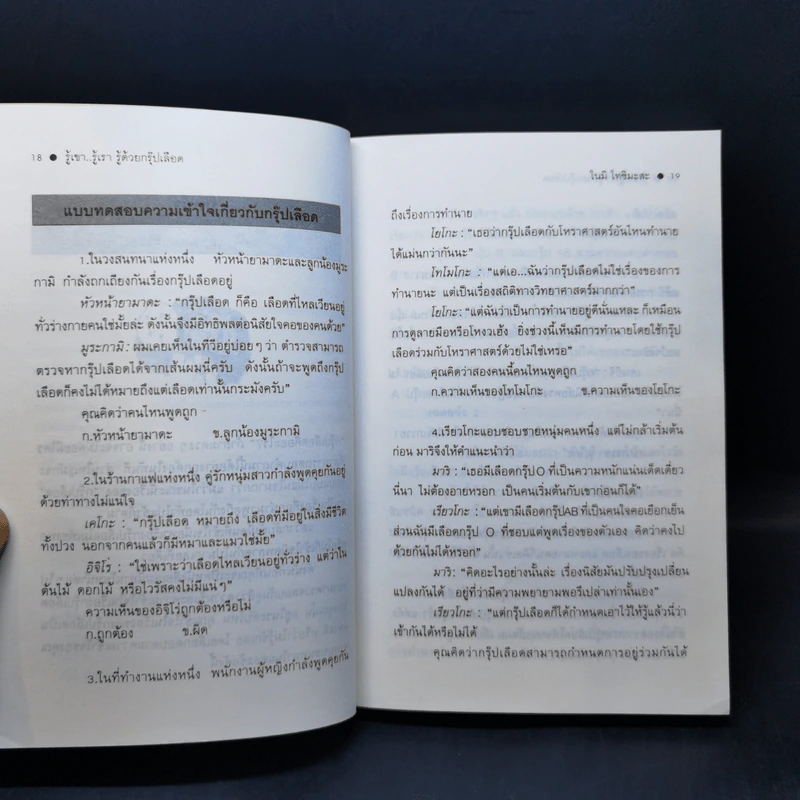 18 ● รู้เขา..รู้เรา รู้ด้วยกรุ๊ปเลือด
แบบทดสอบความเข้าใจเกี่ยวกับกรุ๊ปเลือด
1.ในวงสนทนาแห่งหนึ่ง หัวหน้ายามาดะและลูกน้องมูระ
กามิ กำลังถกเถียงกันเรื่องกรุ๊ปเลือดอยู่
หัวหน้ายามาดะ : “กรุ๊ปเลือด ก็คือ เลือดที่ไหลเวียนอยู่
ทั่วร่างกายคนใช่มั้ยล่ะ ดังนั้นจึงมีอิทธิพลต่อนิสัยใจคอของคนด้วย”
มูระกามิ : ผมเคยเห็นในทีวีอยู่บ่อยๆว่า ตำรวจสามารถ
ตรวจหากรุ๊ปเลือดได้จากเส้นผมนี่ครับ ดังนั้นถ้าจะพูดถึงกรุ๊ป
เลือดก็คงไม่ได้หมายถึงแต่เลือดเท่านั้นกระมังครับ”
คุณคิดว่าคนไหนพูดถูก
ก.หัวหน้ายามาดะ ข.ลูกน้องมูระกามิ
2.ในร้านกาแฟแห่งหนึ่ง คู่รักหนุ่มสาวกำลังพูดคุยกันอยู่
ด้วยท่าทางไม่แน่ใจ
เคโกะ : “กรุ๊ปเลือด หมายถึง เลือดที่มีอยู่ในสิ่งมีชีวิต
ทั้งปวง นอกจากคนแล้วก็มีหมาและแมวใช่มั้ย”
อิจิโร่ : “ใช่เพราะว่าเลือดไหลเวียนอยู่ทั่วร่าง แต่ว่าใน
ต้นไม้ ดอกไม้ หรือไวรัสคงไม่มีแน่ๆ”
ความเห็นของอิจิโร่ถูกต้องหรือไม่
ก.ถูกต้อง ข.ผิด
3.ในที่ทำงานแห่งหนึ่ง พนักงานผู้หญิงกำลังพูดคุยกัน
โนมิ โทชิมะสะ ● 19
ถึงเรื่องการทำนาย
โยโกะ : “เธอว่ากรุ๊ปเลือดกับโหราศาสตร์อันไหนทำนาย
ได้แม่นกว่ากันนะ”
โทโมโกะ : “แต่เอ...ฉันว่ากรุ๊ปเลือดไม่ใช่เรื่องของการ
ทำนายนะ แต่เป็นเรื่องสถิติทางวิทยาศาสตร์มากกว่า”
โยโกะ : “แต่ฉันว่าเป็นการทำนายอยู่ดีนั่นแหละ ก็เหมือน
การดูลายมือหรือโหงวเฮ้ง ยิ่งช่วงนี้เห็นมีการทำนายโดยใช้กรุ๊ป
เลือดร่วมกับโหราศาสตร์ด้วยไม่ใช่เหรอ”
คุณคิดว่าสองคนนี้คนไหนพูดถูก
ก.ความเห็นของโทโมโกะ ข.ความเห็นของโยโกะ
4.เรียวโกะแอบชอบชายหนุ่มคนหนึ่ง แต่ไม่กล้าเริ่มต้น
ก่อน มาริจึงให้คำแนะนำว่า
มาริ : “เธอมีเลือดกรุ๊ปO ที่เป็นความหนักแน่นเด็ดเดี่ยว
นี่นา ไม่ต้องอายหรอก เป็นคนเริ่มต้นกับเขาก่อนก็ได้”
เรียวโกะ : “แต่เขามีเลือดกรุ๊ปAB ที่เป็นคนใจคอเยือกเย็น
ส่วนฉันมีเลือดกรุ๊ป O ที่ชอบแต่พูดเรื่องของตัวเอง คิดว่าคงไป
ด้วยกันไม่ได้หรอก”
มาริ: “คิดอะไรอย่างนั้นล่ะ เรื่องนิสัยมันปรับปรุงเปลี่ยน
แปลงกันได้ อยู่ที่ว่ามีความพยายามพอรึเปล่าเท่านั้นเอง”
เรียวโกะ : “แต่กรุ๊ปเลือดก็ได้กำหนดเอาไว้ให้รู้แล้วนี่ว่า
เข้ากันได้หรือไม่ได้
คุณคิดว่ากรุ๊ปเลือดสามารถกำหนดการอยู่ร่วมกันได้